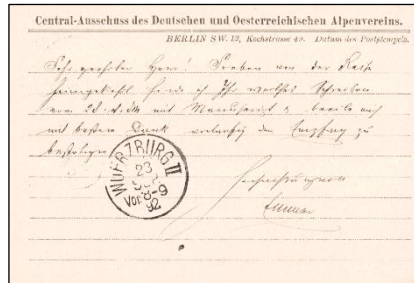 Central-Ausschuss des Deutschen und Oesterreichischen Alpenvereins.
BERLIN SW. 12, Kochstrasse 49. Datum des Poststempels.
Sehr geehrter Herr! Soeben von der Reise
heimgekehrt finde ich Ihr werthes Schreiben
vom mit Manuscript & beeile mich
mit bestem Dank vorläufig den Empfang zu
bestätigen
WUERZBURG II
23
Vor. 8-9
92
Hochachtungsvoll